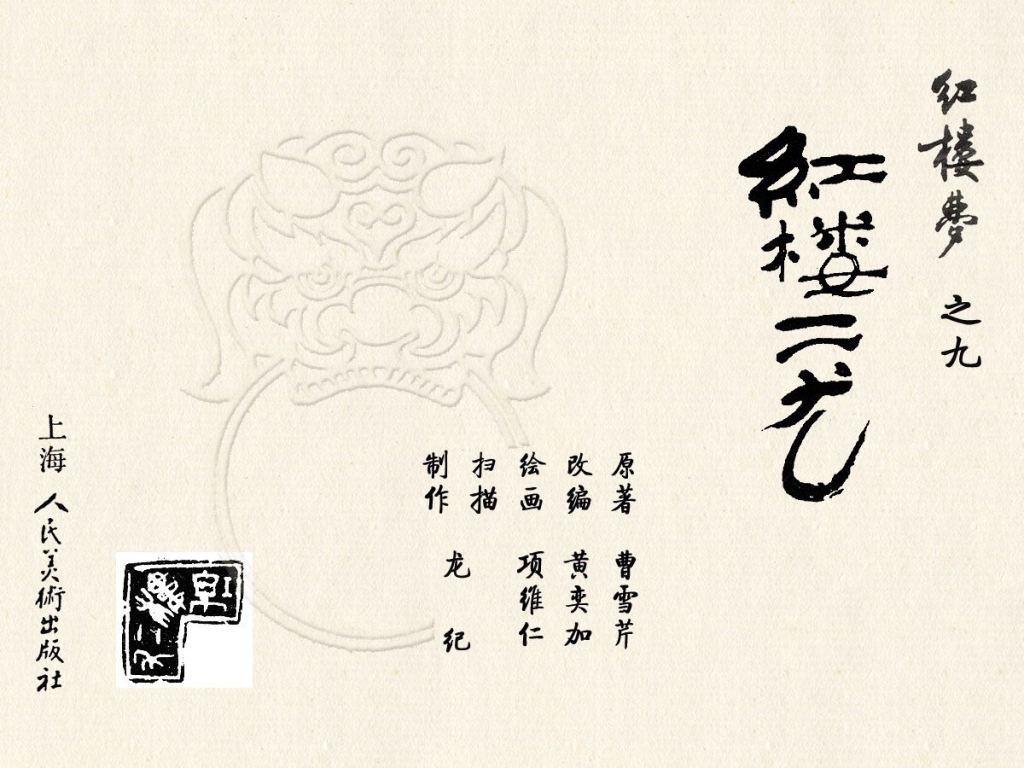 红楼梦 之九
红楼二尤
原著 曹雪芹
改编 黄奕加
绘画 项维仁
扫描
制作 龙纪
上海人民美術出版社